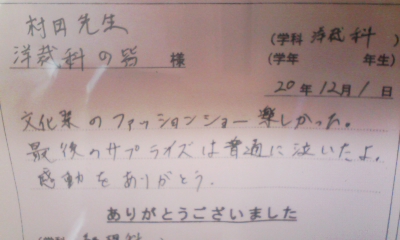 村田先生
洋裁科の皆 様
(学科 洋裁科 )
(学年 年生)
20年12月1日
文化祭のファッションショー楽しかった。
最後のサプライズは普通に泣いたよ。
感動をありがとう。
ありがとうございました